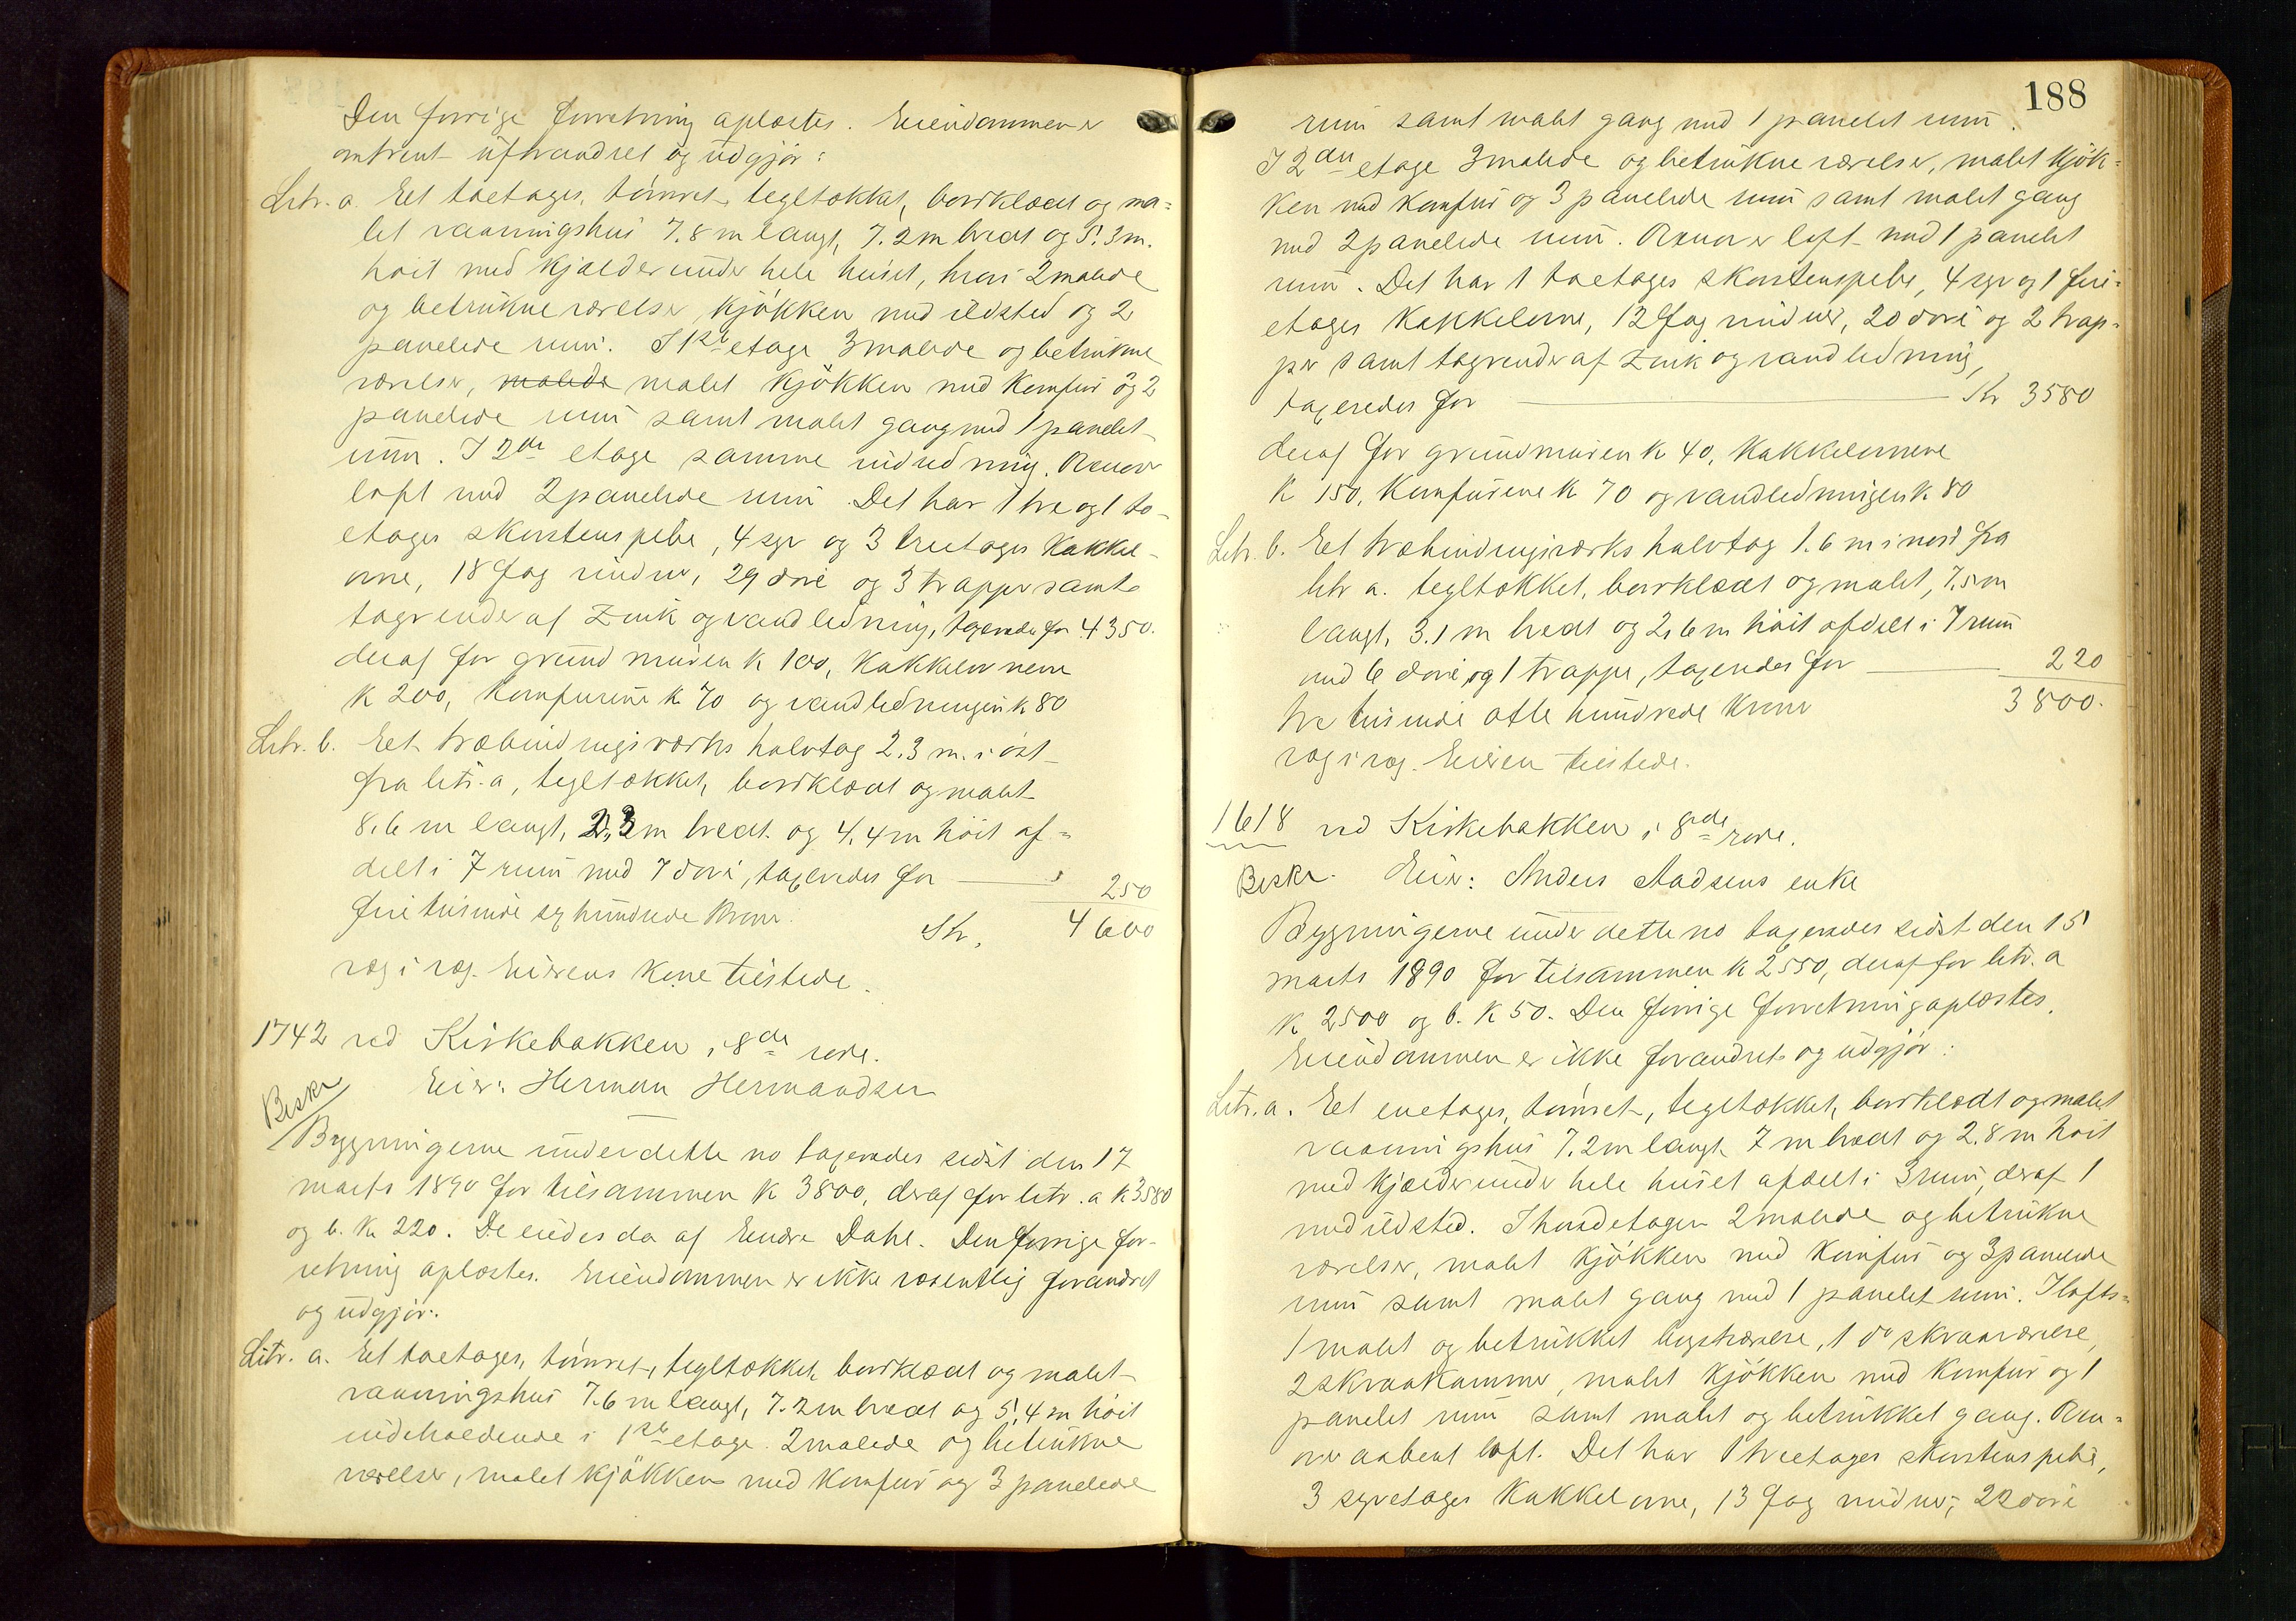 Den forrige forretning oplæstes. Eiendommen er
omtrent uforandret og udgjør:
Litr. a. Eet toetages, tømret, tegltækket, bordklædt og ma=
let vaaningshus 7.8 m langt, 7.2 m bredt og 5.3 m.
høit med kjælder under hele huset, hvori 2 malede
og betrukne værelser, kjøkken med ildsted og 2
panelede rum. I 1ste etage 3 malede og betrukne
værelser, malede malet kjøkken med komfur og 2
panelede rum samt malet gang med 1 panelet
rum. I 2den etage samme indredning. Ovenover
loft med 2 panelede rum. Det har 1 tre og 1 to-
etages skorstenspibe, 4 syv og 3 treetages kakkel-
ovne, 18 fag vinduer, 29 døre og 3 trapper samt
tagrender af zink og vandledning, taxeredes for 4350.
deraf for grundmuren k 100, kakkelovnene
k 200, komfurene k 70 og vandledningen k 80
Litr. b. Eet træbindingsværks halvtag 2.3 m. i øst
fra litr. a, tegltækket, bordklædt og malet
8.6 m langt, 2.3 m bredt og 4.4 m høit af=
delt i 7 rum med 7 døre, taxeredes for 250
fire tusinde sex hundrede kroner. Kr. 4600
væg i væg. Eierens kone tilstede.
1742 ved Kirkebakken i 8de rode.
Beskr Eier: Herman Hermandsen
Bygningerne under dette no taxeredes sidst den 17
marts 1890 for tilsammen k 3800, deraf for litr. a k 3580
og b. k 220. De eiedes da af Endre Dahl. Den forrige for-
retning oplæstes. Eiendommen er ikke væsentlig forandret
og udgjør:
Litr. a. Eet toetages, tømret, tegltækket, bordklædt og malet
vaaningshus 7.6 m langt, 7.2 m bredt og 5.4 m høit
indeholdende i 1ste etage 2 malede og betrukne
værelser, malet kjøkken med komfur og 3 panelede
188
rum samt malet gang med 1 panelet rum.
I 2den etage 3 malede og betrukne værelser, malet kjøk=
ken med komfur og 3 panelede rum samt malet gang
med 2 panelede rum. Ovenover loft med 1 panelet
rum. Det har 1 toetages skorstenspibe, 4 syv og 1 fire=
etages kakkelovne, 12 fag vinduer, 20 døre og 2 trap=
per samt tagrender af zink og vandledning,
taxeredes for Kr 3580
deraf for grundmuren k 40, kakkelovnene
k 150, komfurene k 70 og vandledningen k 80
Litr. b. Eet træbindingsværks halvtag 1.6 m i nord fra
litr a. tegltækket, bordklædt og malet, 7.5 m
langt, 3.1 m bredt og 2.6 m høit afdelt i 7 rum
med 6 døre og 1 trappe, taxeredes for 220
tre tusinde otte hundrede kroner 3800.
væg i væg. Eieren tilstede.
1618 ved Kirkebakken i 8de rode.
Beskr. Eier: Anders Aadsens enke
Bygningerne under dette no taxeredes sidst den 15
marts 1890 for tilsammen k 2550, deraf for litr. a
k 2500 og b. k 50. Den forrige forretning oplæstes.
Eiendommen er ikke forandret og udgjør:
Litr. a. Eet enetages, tømret, tegltækket, bordklædt og malet
vaaningshus 7.2 m langt 7 m bredt og 2.8 m høit
med kjælder under hele huset afdelt i 3 rum, deraf 1
med ildsted. I hovedetagen 2 malede og betrukne
værelser, malet kjøkken med komfur og 3 panelede
rum samt malet gang med 1 panelet rum. I lofts=
1 malet og betrukket kvistværelse, 1 do skraaværelse,
2 skraakammer, malet kjøkken med komfur og 1
panelet rum samt malet og betrukket gang. Oven=
over aabent loft. Det har 1 treetages skorstenspibe,
3 syvetages kakkelovne, 13 fag vinduer, 22 døre